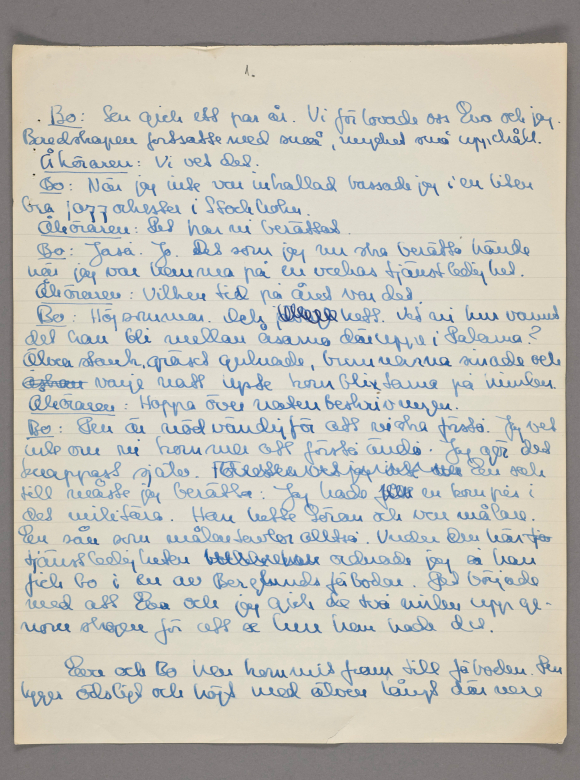 1.
Bo: Sen gick ett par år. Vi förlovade oss Eva och jag.
Beredskapen fortsatte med små, mycket små uppehåll.
Åhöraren: Vi vet det.
Bo: När jag inte var inkallad bassade jag i en liten
bra jazzorkester i Stockholm.
Åhöraren: Det har ni berättat.
Bo: Jaså. Jo. Det som jag nu ska berätta hände
när jag var hemma på en veckas tjänstledighet.
Åhöraren: Vilken tid på året var det.
Bo: Högsommar. Och hett. Vet ni hur varmt
det kan bli mellan åsarna däruppe i Dalarna?
Älven sjönk, gräset gulnade, brunnarna sinade och
varje natt lyste kornblixtarna på himlen.
Åhöraren: Hoppa över naturbeskrivningen.
Bo: Den är nödvändig för att ni ska förstå. Jag vet
inte om ni kommer att förstå ändå. Jag gör det
knappast själv. Men och
till måste jag berätta: Jag hade en kompis i
det militära. Han hette Göran och var målare.
En sån som målar tavlor alltså. Under den här
tjänstledigheten ordnade jag så han
fick bo i en av Berglunds fäbodar. Det började
med att Eva och jag gick de två milen upp ge-
nom skogen för att se hur han hade det.
Eva och Bo har kommit fram till fäboden. Den
ligger ödsligt och högt med älven långt där nere